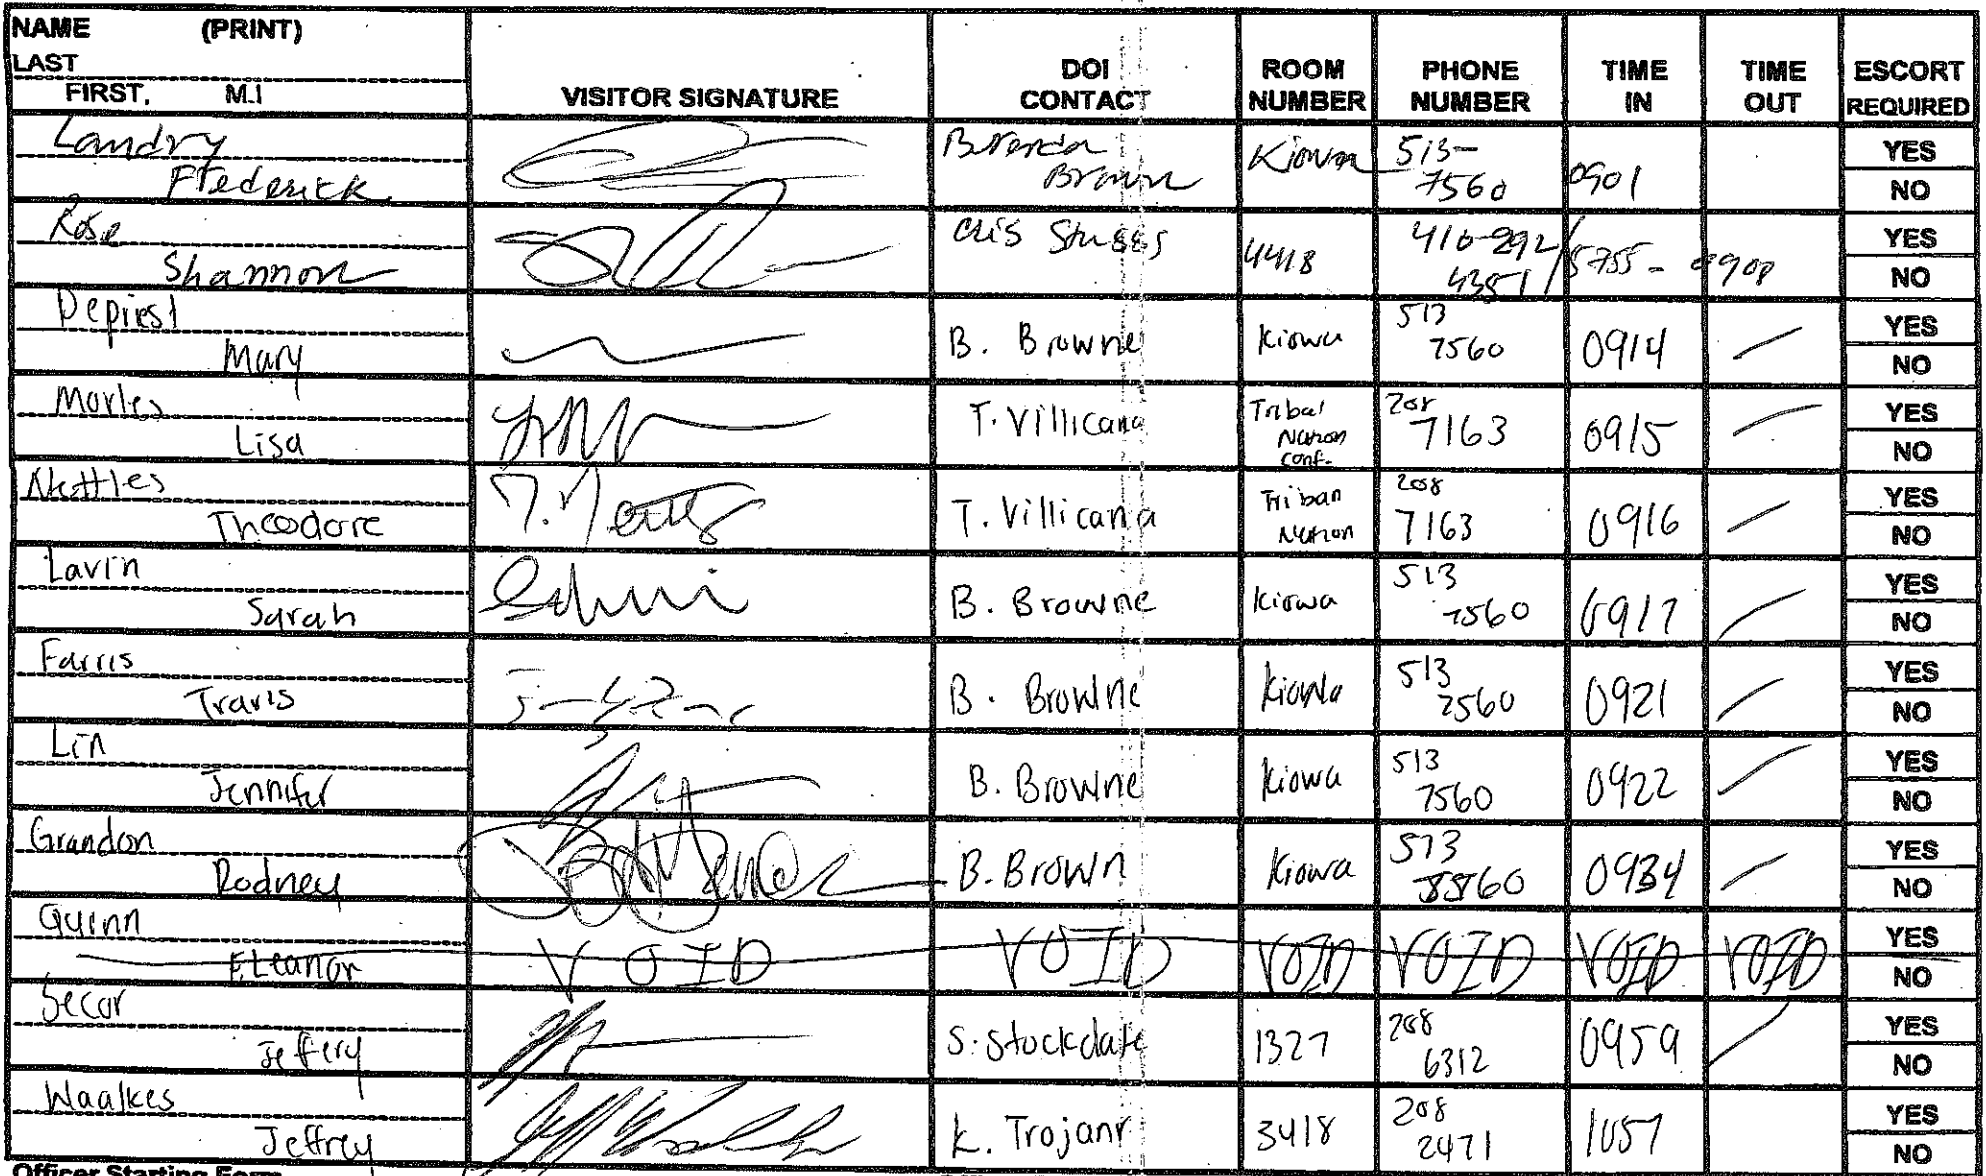 NAME (PRINT)
LAST
FIRST, M.I
VISITOR SIGNATURE
DOI CONTACT
ROOM NUMBER
PHONE NUMBER
TIME IN
TIME OUT
ESCORT REQUIRED
Landry
Frederick
Brenda
Brown
Kiowa
513-
7560
0901
YES
NO
Rose
Shannon
4418
410-292/
4351/
5755 - 0908
YES
NO
Depriest
Mary
B. Browne
Kiowa
513
7560
0914
YES
NO
Lisa
T. Villicana
Tribal
Nation
conf.
208
7163
0915
YES
NO
Nettles
Theodore
T. Villicana
Triban
Nation
208
7163
0916
YES
NO
Lavin
Sarah
B. Browne
Kiowa
513
7560
0917
YES
NO
Farris
Travis
B. Browne
Kiowa
513
7560
0921
YES
NO
Lin
Jennifer
B. Browne
Kiowa
513
7560
0922
YES
NO
Grandon
Rodney
B. Brown
Kiowa
513
0934
YES
NO
Quinn
Eleanor
VOID
VOID
VOID
VOID
VOID
VOID
YES
NO
Secor
Jeffery
S. Stockdale
1327
208
6312
0959
YES
NO
Waalkes
Jeffrey
K. Trojanr
3418
208
2471
1057
YES
NO
Officer Starting Form